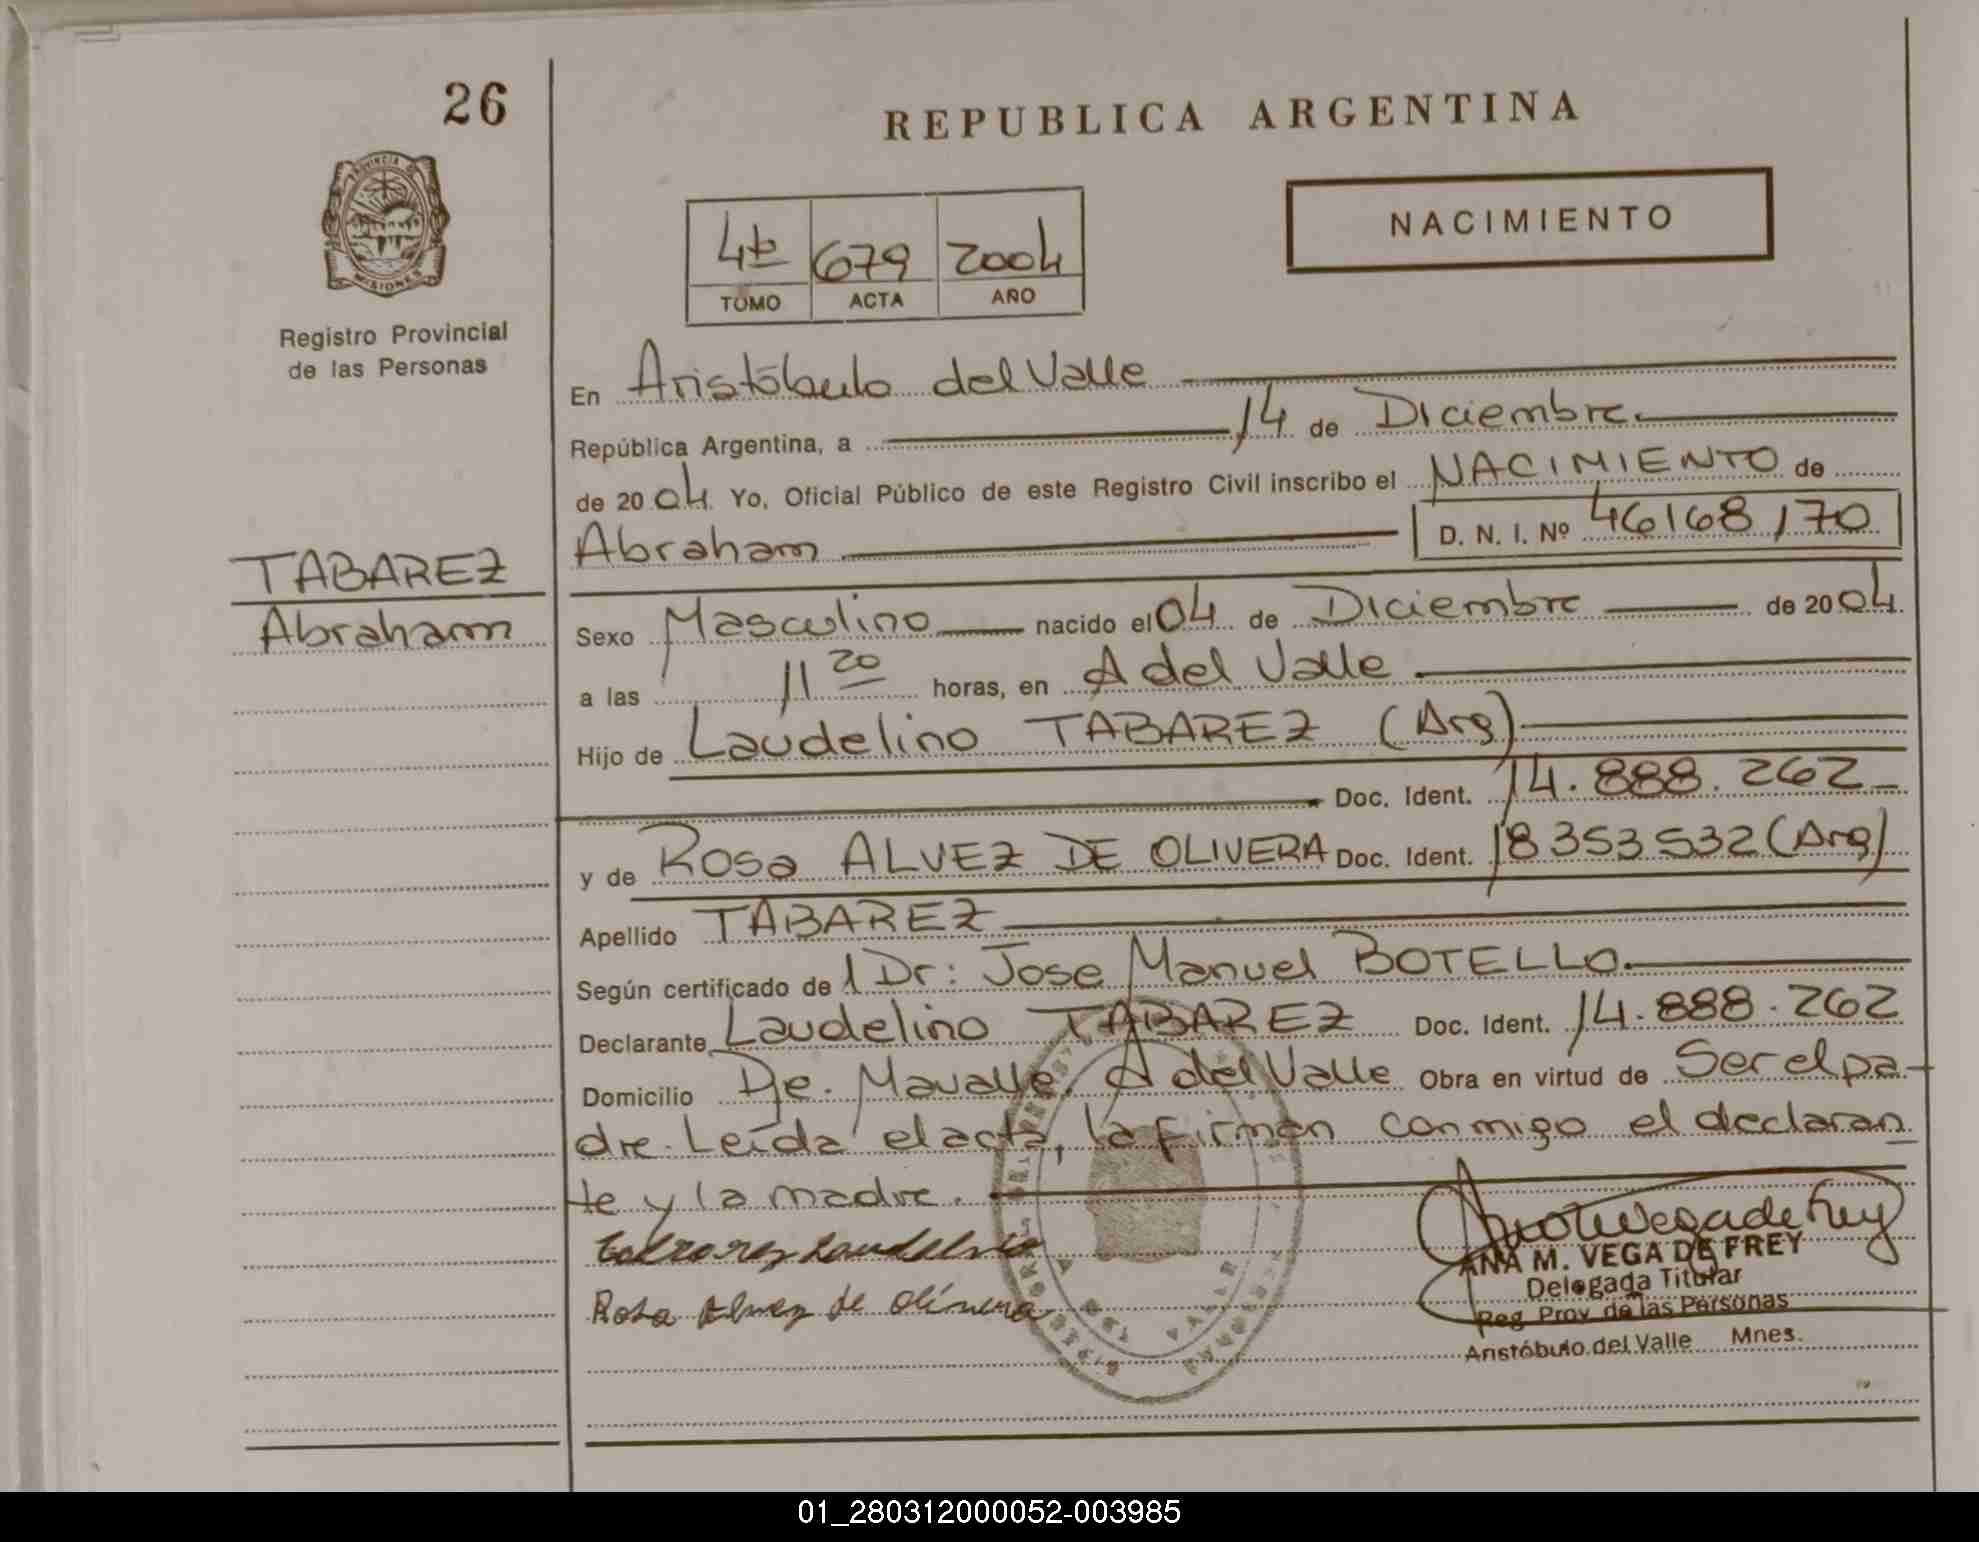 26
REPUBLICA ARGENTINA
PROVINCIA DE
MISIONES
NACIMIENTO
4to 679 2004
TOMO ACTA AÑO
Registro Provincial
de las Personas
En Aristóbulo del Valle
República Argentina, a 14 de Diciembre.
de 2004. Yo, Oficial Público de este Registro Civil inscribo el NACIMIENTO de
Abraham D. N. I. Nº 46168170
TABAREZ
Abraham
Sexo Masculino nacido el 04 de Diciembre de 2004.
a las 11 20 horas, en A del Valle
Hijo de Laudelino TABAREZ (Arg)
Doc. Ident. 14.888.262
y de Rosa ALVEZ DE OLIVERA Doc. Ident. 18353532 (Arg)
Apellido TABAREZ
Según certificado del Dr: Jose Manuel BOTELLO.
Declarante Laudelino TABAREZ Doc. Ident. 14.888.262
Domicilio A del Valle Obra en virtud de Ser el pa-
dre. Leída el acta, la firman conmigo el declaran
te y la madre.
Tabarez Laudelino
Rosa Alvez de Olivera
ANA M. VEGA DE FREY
Delegada Titular
Reg. Prov. de las Personas
Aristóbulo del Valle Mnes.
01_280312000052-003985